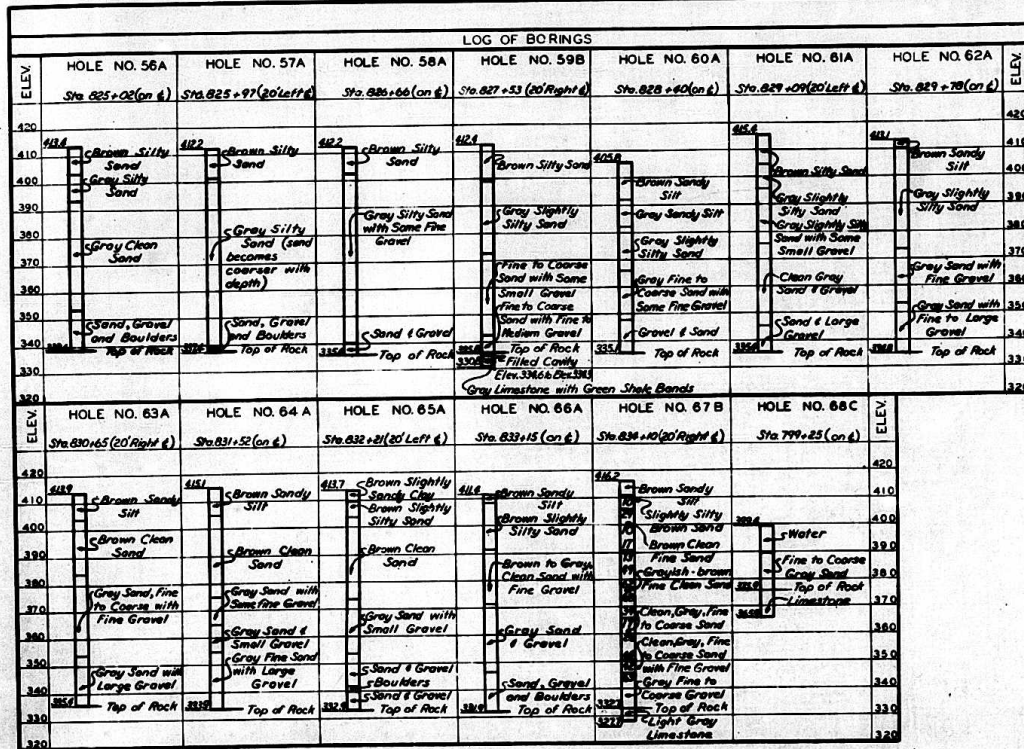 LOG OF BORINGS
ELEV.
HOLE NO. 56A
Sta. 825+02 (on ℄)
420
410
400
390
380
370
360
350
340
330
320
413.4
Brown Silty
Sand
Gray Silty
Sand
Gray Clean
Sand
Sand, Gravel
and Boulders
Top of Rock
HOLE NO. 57A
Sta. 825+97 (20' Left ℄)
412.2
Brown Silty
Sand
Gray Silty
Sand (sand
becomes
coarser with
depth)
Sand, Gravel
and Boulders
Top of Rock
HOLE NO. 58A
Sta. 826+66 (on ℄)
412.2
Brown Silty
Sand
Gray Silty Sand
with Some Fine
Gravel
Sand & Gravel
Top of Rock
HOLE NO. 59B
Sta. 827+53 (20' Right ℄)
412.4
Brown Silty Sand
Gray Slightly
Silty Sand
Fine to Coarse
Sand with Some
Small Gravel
Fine to Coarse
Sand with Fine to
Medium Gravel
Top of Rock
Filled Cavity
Gray Limestone with Green Shale Bands
HOLE NO. 60A
Sta. 828+40 (on ℄)
405.8
Brown Sandy
Silt
Gray Sandy Silt
Gray Slightly
Silty Sand
Gray Fine to
Coarse Sand with
Some Fine Gravel
Gravel & Sand
Top of Rock
HOLE NO. 61A
Sta. 829+09 (20' Left ℄)
415.4
Brown Silty Sand
Gray Slightly
Silty Sand
Gray Slightly Silty
Sand with Some
Small Gravel
Clean Gray
Sand & Gravel
Sand & Large
Gravel
Top of Rock
HOLE NO. 62A
Sta. 829+78 (on ℄)
413.1
Brown Sandy
Silt
Gray Slightly
Silty Sand
Gray Sand with
Fine Gravel
Gray Sand with
Fine to Large
Gravel
Top of Rock
ELEV.
HOLE NO. 63A
Sta. 830+65 (20' Right ℄)
420
410
400
390
380
370
360
350
340
330
320
413.9
Brown Sandy
Silt
Brown Clean
Sand
Gray Sand, Fine
to Coarse with
Fine Gravel
Gray Sand with
Large Gravel
Top of Rock
HOLE NO. 64A
Sta. 831+52 (on ℄)
415.1
Brown Sandy
Silt
Brown Clean
Sand
Gray Sand with
Some fine Gravel
Gray Sand &
Small Gravel
Gray Fine Sand
with Large
Gravel
Top of Rock
HOLE NO. 65A
Sta. 832+21 (20' Left ℄)
413.7
Brown Slightly
Sandy Clay
Brown Slightly
Silty Sand
Brown Clean
Sand
Gray Sand with
Small Gravel
Sand & Gravel
Boulders
Sand & Gravel
332.9
Top of Rock
HOLE NO. 66A
Sta. 833+15 (on ℄)
Brown Sandy
Silt
Brown Slightly
Silty Sand
Brown to Gray,
Clean Sand with
Fine Gravel
Gray Sand
& Gravel
Sand, Gravel
and Boulders
Top of Rock
HOLE NO. 67B
Sta. 834+10 (20' Right ℄)
416.2
Brown Sandy
Silt
Slightly Silty
Brown Sand
Brown Clean
Fine Sand
Grayish-brown
Fine Clean Sand
Clean, Gray, Fine
to Coarse Sand
Clean, Gray, Fine
to Coarse Sand
with Fine Gravel
Gray Fine to
Coarse Gravel
Top of Rock
Light Gray
Limestone
HOLE NO. 68C
Sta. 799+25 (on ℄)
Water
Fine to Coarse
Gray Sand
Top of Rock
Limestone
ELEV.
420
410
400
390
380
370
360
350
340
330
320